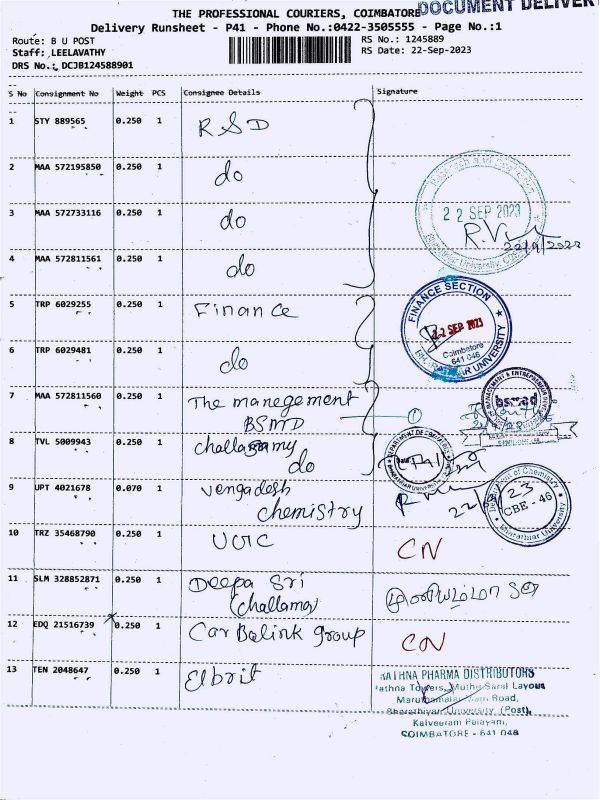 THE PROFESSIONAL COURIERS, COIMBATORE
DOCUMENT DELIVERY
Delivery Runsheet - P41 - Phone No.:0422-3505555 - Page No.:1
Route: B U POST
RS No.: 1245889
Staff: LEELAVATHY
RS Date: 22-Sep-2023
DRS No.: DCJB124588901
S No Consignment No Weight PCS Consignee Details Signature
1 STY 889565 0.250 1 RSD
2 MAA 572195850 0.250 1 do
3 MAA 572733116 0.250 1 do
22 SEP 2023
R.V
22/9/2023
Bharathiar University
4 MAA 572811561 0.250 1 do
5 TRP 6029255 0.250 1 Finance
FINANCE SECTION
22 SEP 2023
Coimbatore
641 046
BHARATHIAR UNIVERSITY
6 TRP 6029481 0.250 1 do
7 MAA 572811560 0.250 1 The manegement
BSMD
1
bsmed
8 TVL 5009943 0.250 1 challasamy
do
DEPARTMENT OF
BHARATHIAR UNIVERSITY
9 UPT 4021678 0.070 1 vengadesh
chemistry
Department of Chemistry
CBE - 46
Bharathiar University
10 TRZ 35468790 0.250 1 UGC
CN
11 SLM 328852871 0.250 1 Deepa Sri
(challama)
12 EDQ 21516739 0.250 1 CarBalink group
CN
13 TEN 2048647 0.250 1 Elbrit
RATHNA PHARMA DISTRIBUTORS
Rathna Towers, Muthu Layout
Maruthamalai Main Road,
Bharathiyar University (Post),
Kalveeram Palayam,
COIMBATORE - 641 046